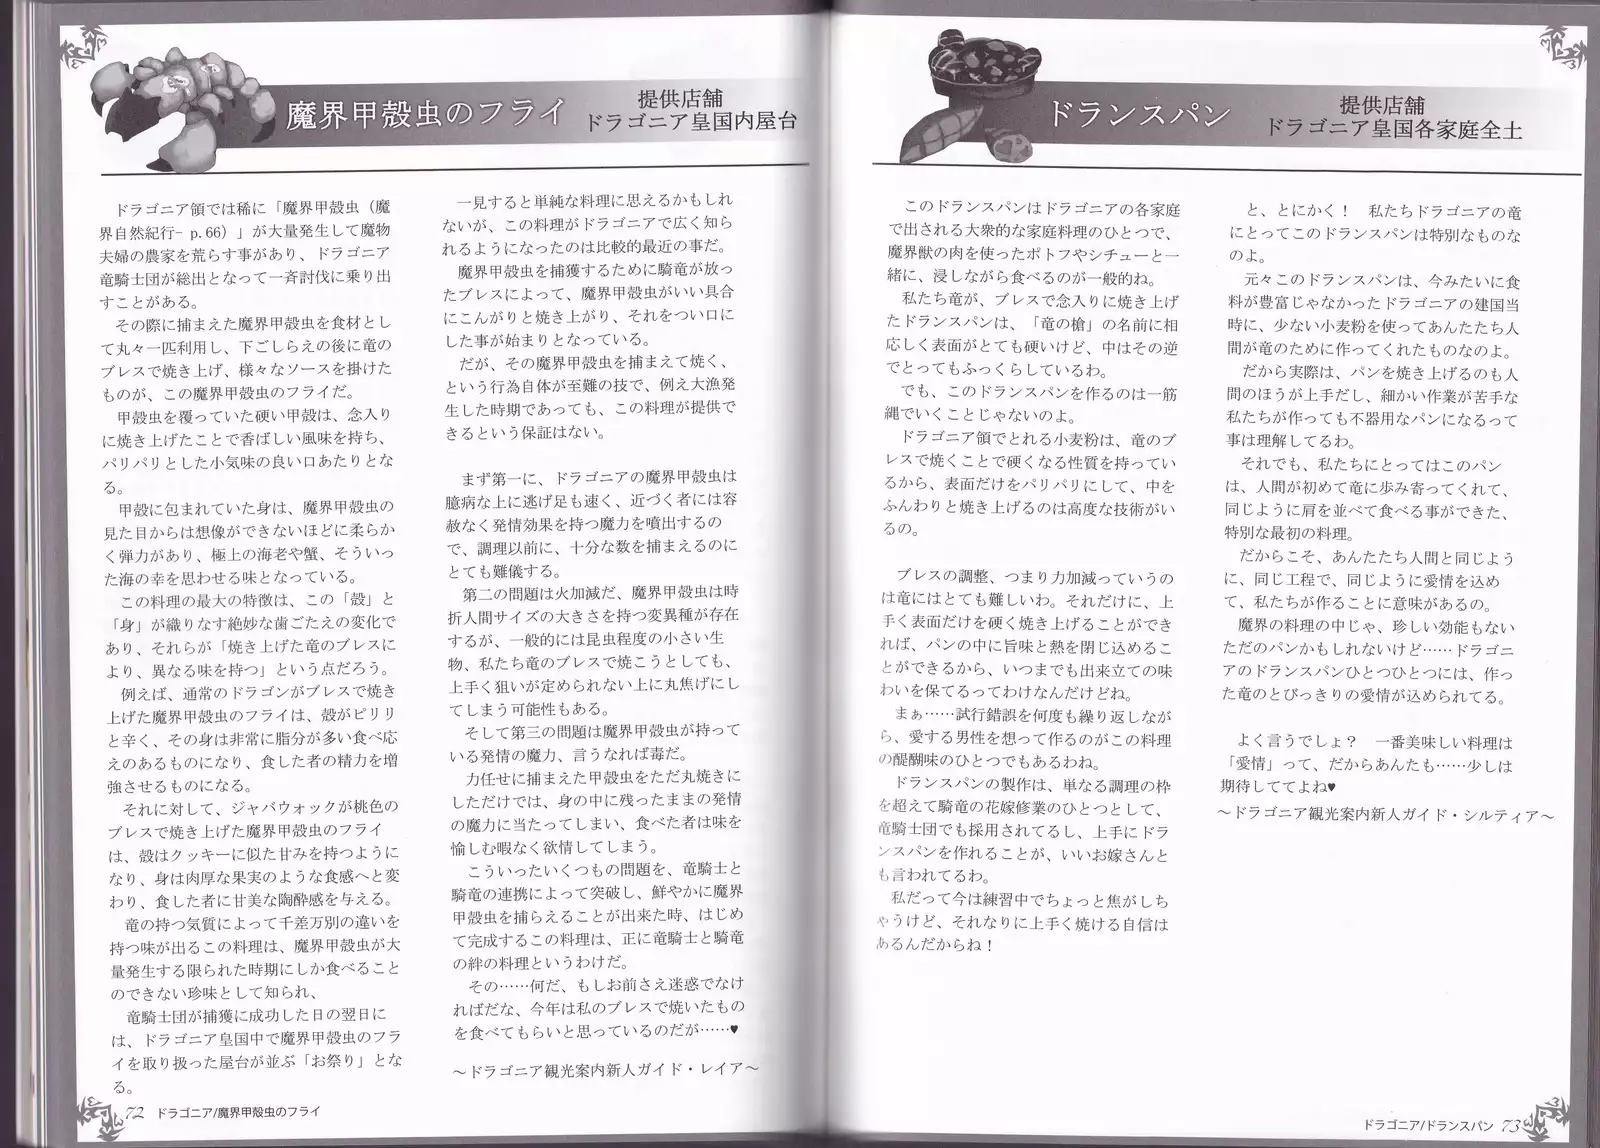 魔界甲殻虫のフライ
提供店舗
ドラゴニア皇国内屋台
ドラゴニア領では稀に「魔界甲殻虫（魔
界自然紀行- p.66）」が大量発生して魔物
夫婦の農家を荒らす事があり、ドラゴニア
竜騎士団が総出となって一斉討伐に乗り出
すことがある。
その際に捕まえた魔界甲殻虫を食材とし
て丸々一匹利用し、下ごしらえの後に竜の
ブレスで焼き上げ、様々なソースを掛けた
ものが、この魔界甲殻虫のフライだ。
甲殻虫を覆っていた硬い甲殻は、念入り
に焼き上げたことで香ばしい風味を持ち、
パリパリとした小気味の良い口あたりとな
る。
甲殻に包まれていた身は、魔界甲殻虫の
見た目からは想像ができないほどに柔らか
く弾力があり、極上の海老や蟹、そういっ
た海の幸を思わせる味となっている。
この料理の最大の特徴は、この「殻」と
「身」が織りなす絶妙な歯ごたえの変化で
あり、それらが「焼き上げた竜のブレスに
より、異なる味を持つ」という点だろう。
例えば、通常のドラゴンがブレスで焼き
上げた魔界甲殻虫のフライは、殻がピリリ
と辛く、その身は非常に脂分が多い食べ応
えのあるものになり、食した者の精力を増
強させるものになる。
それに対して、ジャバウォックが桃色の
ブレスで焼き上げた魔界甲殻虫のフライ
は、殻はクッキーに似た甘みを持つように
なり、身は肉厚な果実のような食感へと変
わり、食した者に甘美な陶酔感を与える。
竜の持つ気質によって千差万別の違いを
持つ味が出るこの料理は、魔界甲殻虫が大
量発生する限られた時期にしか食べること
のできない珍味として知られ、
竜騎士団が捕獲に成功した日の翌日に
は、ドラゴニア皇国中で魔界甲殻虫のフラ
イを取り扱った屋台が並ぶ「お祭り」とな
る。
一見すると単純な料理に思えるかもしれ
ないが、この料理がドラゴニアで広く知ら
れるようになったのは比較的最近の事だ。
魔界甲殻虫を捕獲するために騎竜が放っ
たブレスによって、魔界甲殻虫がいい具合
にこんがりと焼き上がり、それをつい口に
した事が始まりとなっている。
だが、その魔界甲殻虫を捕まえて焼く、
という行為自体が至難の技で、例え大漁発
生した時期であっても、この料理が提供で
きるという保証はない。
まず第一に、ドラゴニアの魔界甲殻虫は
臆病な上に逃げ足も速く、近づく者には容
赦なく発情効果を持つ魔力を噴出するの
で、調理以前に、十分な数を捕まえるのに
とても難儀する。
第二の問題は火加減だ、魔界甲殻虫は時
折人間サイズの大きさを持つ変異種が存在
するが、一般的には昆虫程度の小さい生
物、私たち竜のブレスで焼こうとしても、
上手く狙いが定められない上に丸焦げにし
てしまう可能性もある。
そして第三の問題は魔界甲殻虫が持って
いる発情の魔力、言うなれば毒だ。
力任せに捕まえた甲殻虫をただ丸焼きに
しただけでは、身の中に残ったままの発情
の魔力に当たってしまい、食べた者は味を
愉しむ暇なく欲情してしまう。
こういったいくつもの問題を、竜騎士と
騎竜の連携によって突破し、鮮やかに魔界
甲殻虫を捕らえることが出来た時、はじめ
て完成するこの料理は、正に竜騎士と騎竜
の絆の料理というわけだ。
その……何だ、もしお前さえ迷惑でなけ
ればだな、今年は私のブレスで焼いたもの
を食べてもらいと思っているのだが……♥
～ドラゴニア観光案内新人ガイド・レイア～
72 ドラゴニア/魔界甲殻虫のフライ
ドランスパン
提供店舗
ドラゴニア皇国各家庭全土
このドランスパンはドラゴニアの各家庭
で出される大衆的な家庭料理のひとつで、
魔界獣の肉を使ったポトフやシチューと一
緒に、浸しながら食べるのが一般的ね。
私たち竜が、ブレスで念入りに焼き上げ
たドランスパンは、「竜の槍」の名前に相
応しく表面がとても硬いけど、中はその逆
でとってもふっくらしているわ。
でも、このドランスパンを作るのは一筋
縄でいくことじゃないのよ。
ドラゴニア領でとれる小麦粉は、竜のブ
レスで焼くことで硬くなる性質を持ってい
るから、表面だけをパリパリにして、中を
ふんわりと焼き上げるのは高度な技術がい
るの。
ブレスの調整、つまり力加減っていうの
は竜にはとても難しいわ。それだけに、上
手く表面だけを硬く焼き上げることができ
れば、パンの中に旨味と熱を閉じ込めるこ
とができるから、いつまでも出来立ての味
わいを保てるってわけなんだけどね。
まぁ……試行錯誤を何度も繰り返しなが
ら、愛する男性を想って作るのがこの料理
の醍醐味のひとつでもあるわね。
ドランスパンの製作は、単なる調理の枠
を超えて騎竜の花嫁修業のひとつとして、
竜騎士団でも採用されてるし、上手にドラ
ンスパンを作れることが、いいお嫁さんと
も言われてるわ。
私だって今は練習中でちょっと焦がしち
ゃうけど、それなりに上手く焼ける自信は
あるんだからね！
と、とにかく！　私たちドラゴニアの竜
にとってこのドランスパンは特別なものな
のよ。
元々このドランスパンは、今みたいに食
料が豊富じゃなかったドラゴニアの建国当
時に、少ない小麦粉を使ってあんたたち人
間が竜のために作ってくれたものなのよ。
だから実際は、パンを焼き上げるのも人
間のほうが上手だし、細かい作業が苦手な
私たちが作っても不器用なパンになるって
事は理解してるわ。
それでも、私たちにとってはこのパン
は、人間が初めて竜に歩み寄ってくれて、
同じように肩を並べて食べる事ができた、
特別な最初の料理。
だからこそ、あんたたち人間と同じよう
に、同じ工程で、同じように愛情を込め
て、私たちが作ることに意味があるの。
魔界の料理の中じゃ、珍しい効能もない
ただのパンかもしれないけど……ドラゴニ
アのドランスパンひとつひとつには、作っ
た竜のとびっきりの愛情が込められてる。
よく言うでしょ？　一番美味しい料理は
「愛情」って、だからあんたも……少しは
期待しててよね♥
～ドラゴニア観光案内新人ガイド・シルティア～
ドラゴニア/ドランスパン 73